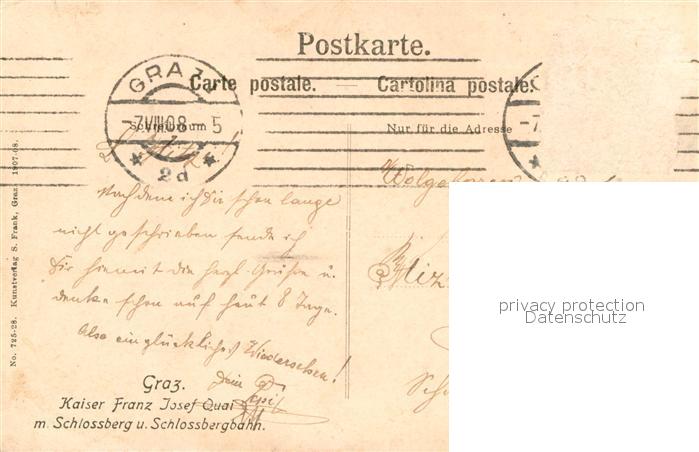 Postkarte.
Carte postale. — Cartolina postale.
GRAZ
-7.VIII.08-5
* 2d *
Schreibraum
Nur für die Adresse
-7
*
L. Mitz!
Nachdem ich Dir schon lange
nicht geschrieben sende ich
Dir hiemit die herzl. Grüße u.
denke schon auf heut 8 Tage.
Also ein glückliches Wiedersehen!
Dein
Graz.
Kaiser Franz Josef Quai
m. Schlossberg u. Schlossbergbahn.
No. 725-28. Kunstverlag S. Frank, Graz. 1907-08.
privacy protection
Datenschutz